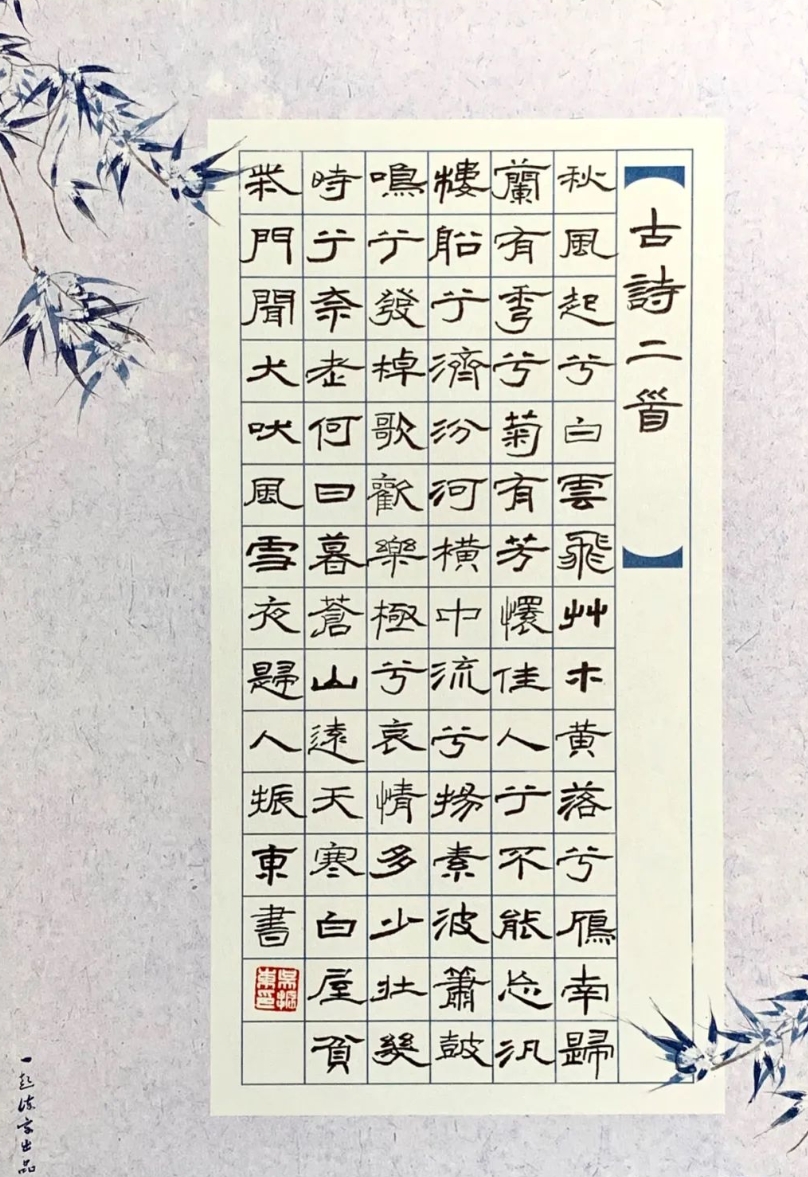 古詩二首
秋風起兮白雲飛艸木黄落兮鴈南歸
蘭有秀兮菊有芳懷佳人兮不能忘汎
樓船兮濟汾河橫中流兮揚素波簫鼓
鳴兮發棹歌歡樂極兮哀情多少壯幾
時兮奈老何日暮蒼山遠天寒白屋貧
柴門聞犬吠風雪夜歸人振東書
吳振東印
一起練字出品